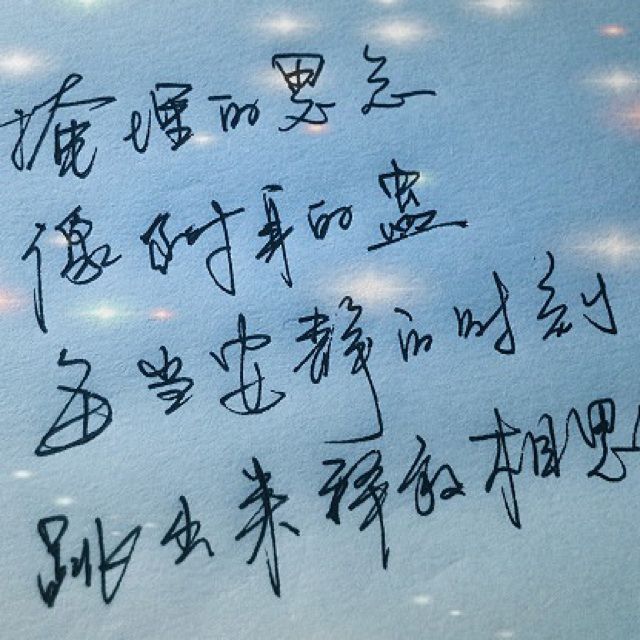 掩埋的思念
像附身的蛊
每当安静的时刻
跳出来释放相思